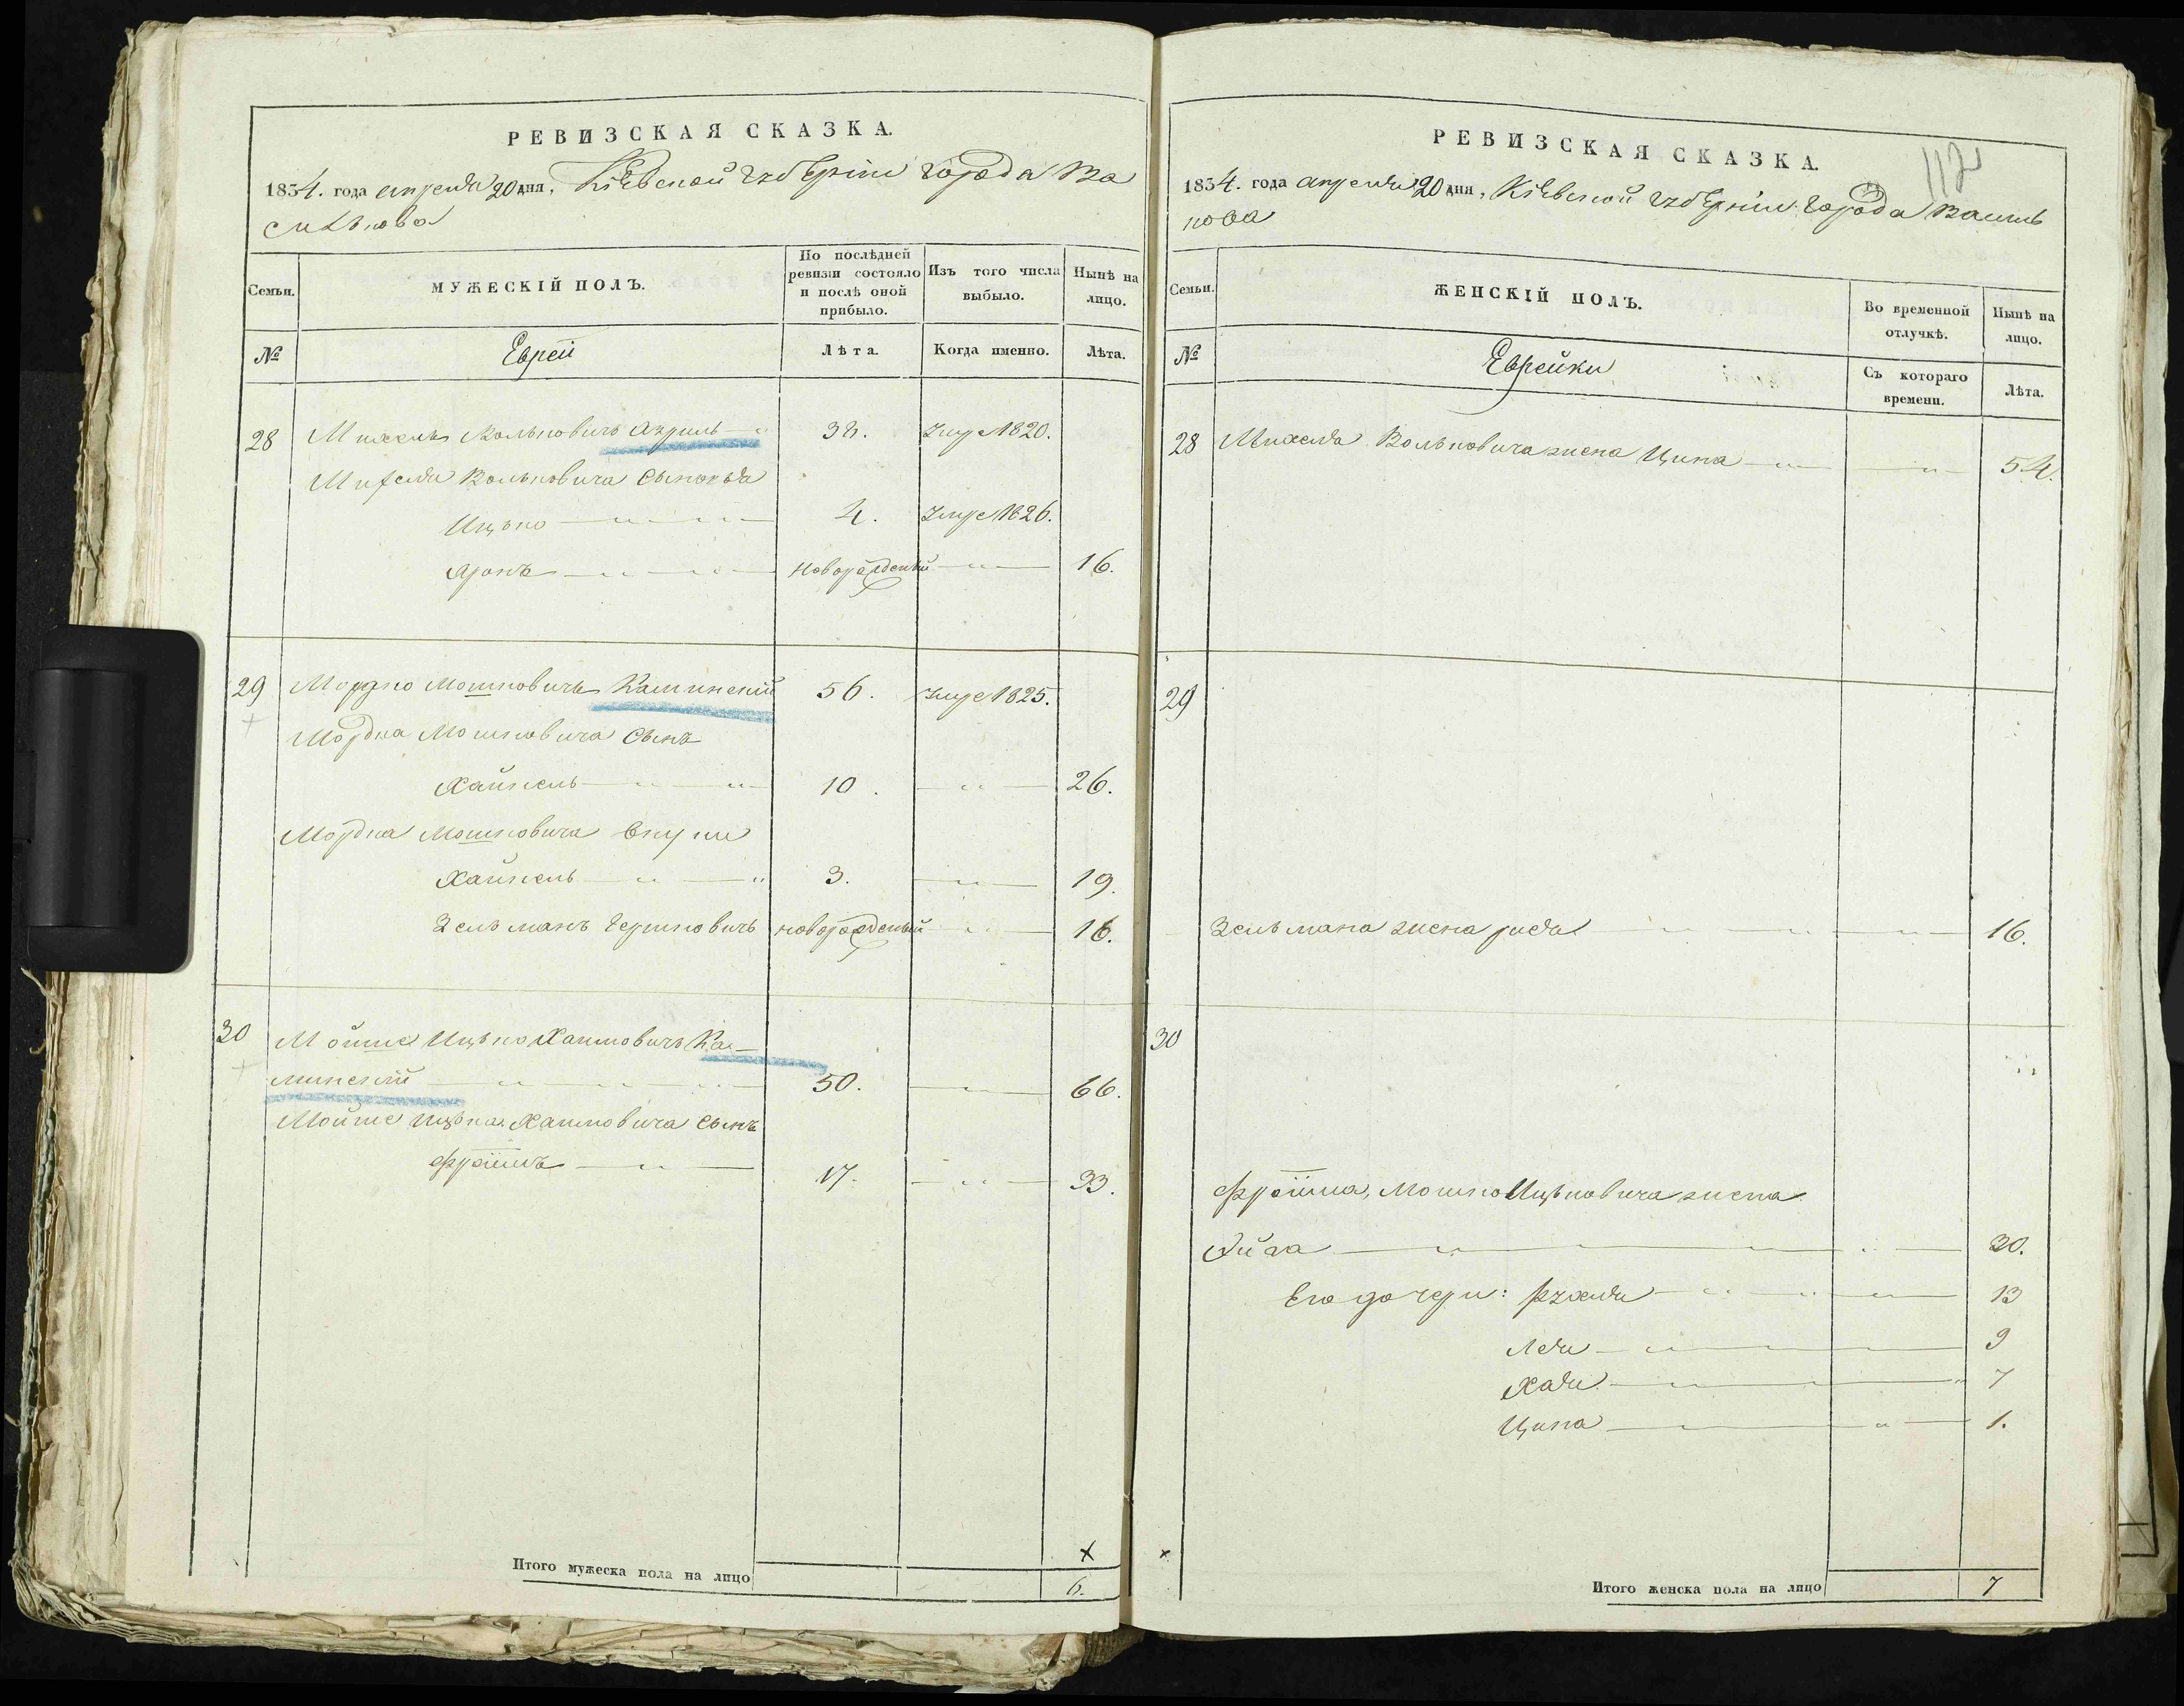 РЕВИЗСКАЯ СКАЗКА.
1834. года апреля 20 дня, Кіевской губерніи города Ва
силькова
Семьи.
МУЖЕСКІЙ ПОЛЪ.
По послѣдней ревизіи состояло и послѣ оной прибыло.
Изъ того числа выбыло.
Нынѣ на лицо.
№
Евреи
Лѣта.
Когда именно.
Лѣта.
28 Михель Вольковичъ 38. умре 1820.
Михеля Вольковича сыновья
Ицько 4. умре 1826.
Аронъ новорожденый 16.
29 Мордко Мошковичъ Каминскій 56. умре 1825.
Мордка Мошковича сынъ
Хайкель 10. 26.
Мордка Мошковича внуки
Хайкель 3. 19.
Зельманъ Гершковичъ новорожденый 16.
30 Мойше Ицько Хаимовичъ Ка-
минскій 50. 66.
Мойше Ицька Хаимовича сынъ
Фроимъ 17. 33.
Итого мужеска пола на лицо 6.
РЕВИЗСКАЯ СКАЗКА.
1834. года апреля 20 дня, Кіевской губерніи города Василь
кова
Семьи.
ЖЕНСКІЙ ПОЛЪ.
Во временной отлучкѣ.
Нынѣ на лицо.
№
Еврейки
Съ котораго времени.
Лѣта.
28 Михеля Вольковича жена Ципа 54.
29
Зельмана жена 16.
30
Фроима, Мошко Ицьковича жена
30.
Его дочери: Рухля 13
Лея 9
Хая 7
Ципа 1.
Итого женска пола на лицо 7